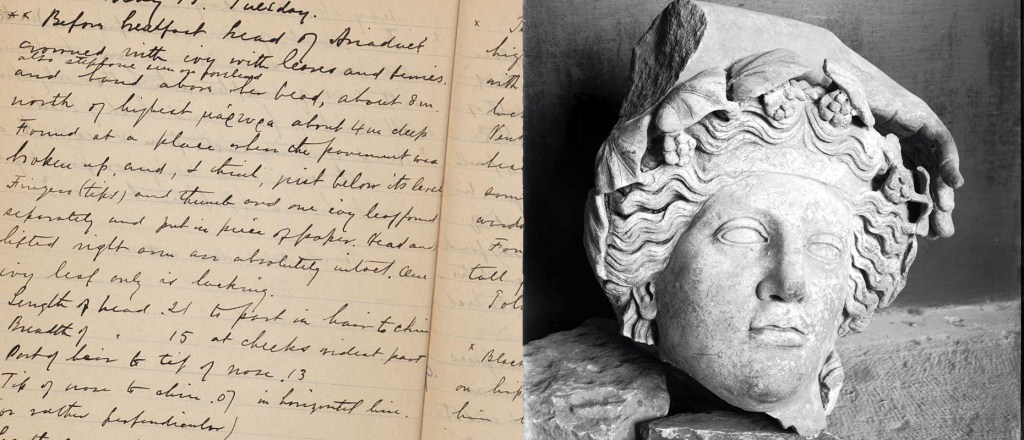 Tuesday.
** Before breakfast head of Ariadne
crowned with ivy with leaves and berries.
also stephane on forehead
and hand above her head, about 8 m.
north of highest about 4 m deep
Found at a place where the pavement was
broken up, and, I think, just below its level
Fingers (tips) and thumb and one ivy leaf found
separately and put in piece of paper. Head and
lifted right arm are absolutely intact. One
ivy leaf only is lacking.
Length of head .21 to part in hair to chin
Breadth of " 15 at cheeks widest part
Part of hair to tip of nose .13
Tip of nose to chin .07 in horizontal line.
or rather perpendicular)
x
with
som
Fou
tall
x Black
on hip
him